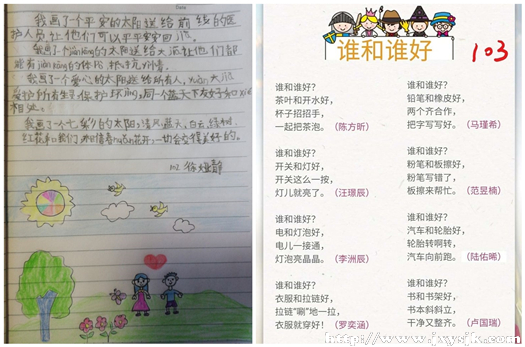 Date
我画了个平安的太阳送给前线的医
护人员让他们可以平平安安回家。
我画了个jiàn kāng的太阳送给大家让他们都
能有jiàn kāng的体
我画了个爱心的太阳送给所有人,
我画了个七彩的太阳,清风蓝天,白云绿树,
红花和我们
一切会变得美好的。
谁和谁好
103
谁和谁好?
茶叶和开水好,
杯子招招手,
一起把茶泡。(陈方昕)
谁和谁好?
开关和灯好,
开关这么一按,
灯儿就亮了。(汪璟辰)
谁和谁好?
电和灯泡好,
电儿一接通,
灯泡亮晶晶。(李洲辰)
谁和谁好?
衣服和拉链好,
拉链“唰”地一拉,
衣服就穿好!(罗奕涵)
谁和谁好?
铅笔和橡皮好,
两个齐合作,
把字写写好。(马瑾希)
谁和谁好?
粉笔和板擦好,
粉笔写错了,
板擦来帮忙。(范昱楠)
谁和谁好?
汽车和轮胎好,
轮胎转啊转,
汽车向前跑。(陆佑晞)
谁和谁好?
书和书架好,
书本斜斜立,
干净又整齐。(卢国瑞)